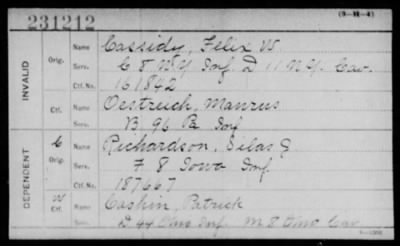 (3-H-4)
231212
INVALID
Orig.
Name Cassidy, Felix W.
Serv. C 8 N.Y. Inf. D 11 N.Y. Cav.
Ctf. No. 161842
Ctf.
Name Oestreich, Manrus
Serv. B, 96 Pa Inf
DEPENDENT
C
Orig.
Name Richardson, Silas J.
Serv. F 8 Iowa Inf.
Ctf. No. 187667
W
Ctf.
Name Cashin, Patrick
Serv. D 44 Ohio Inf. M 8 Ohio Cav